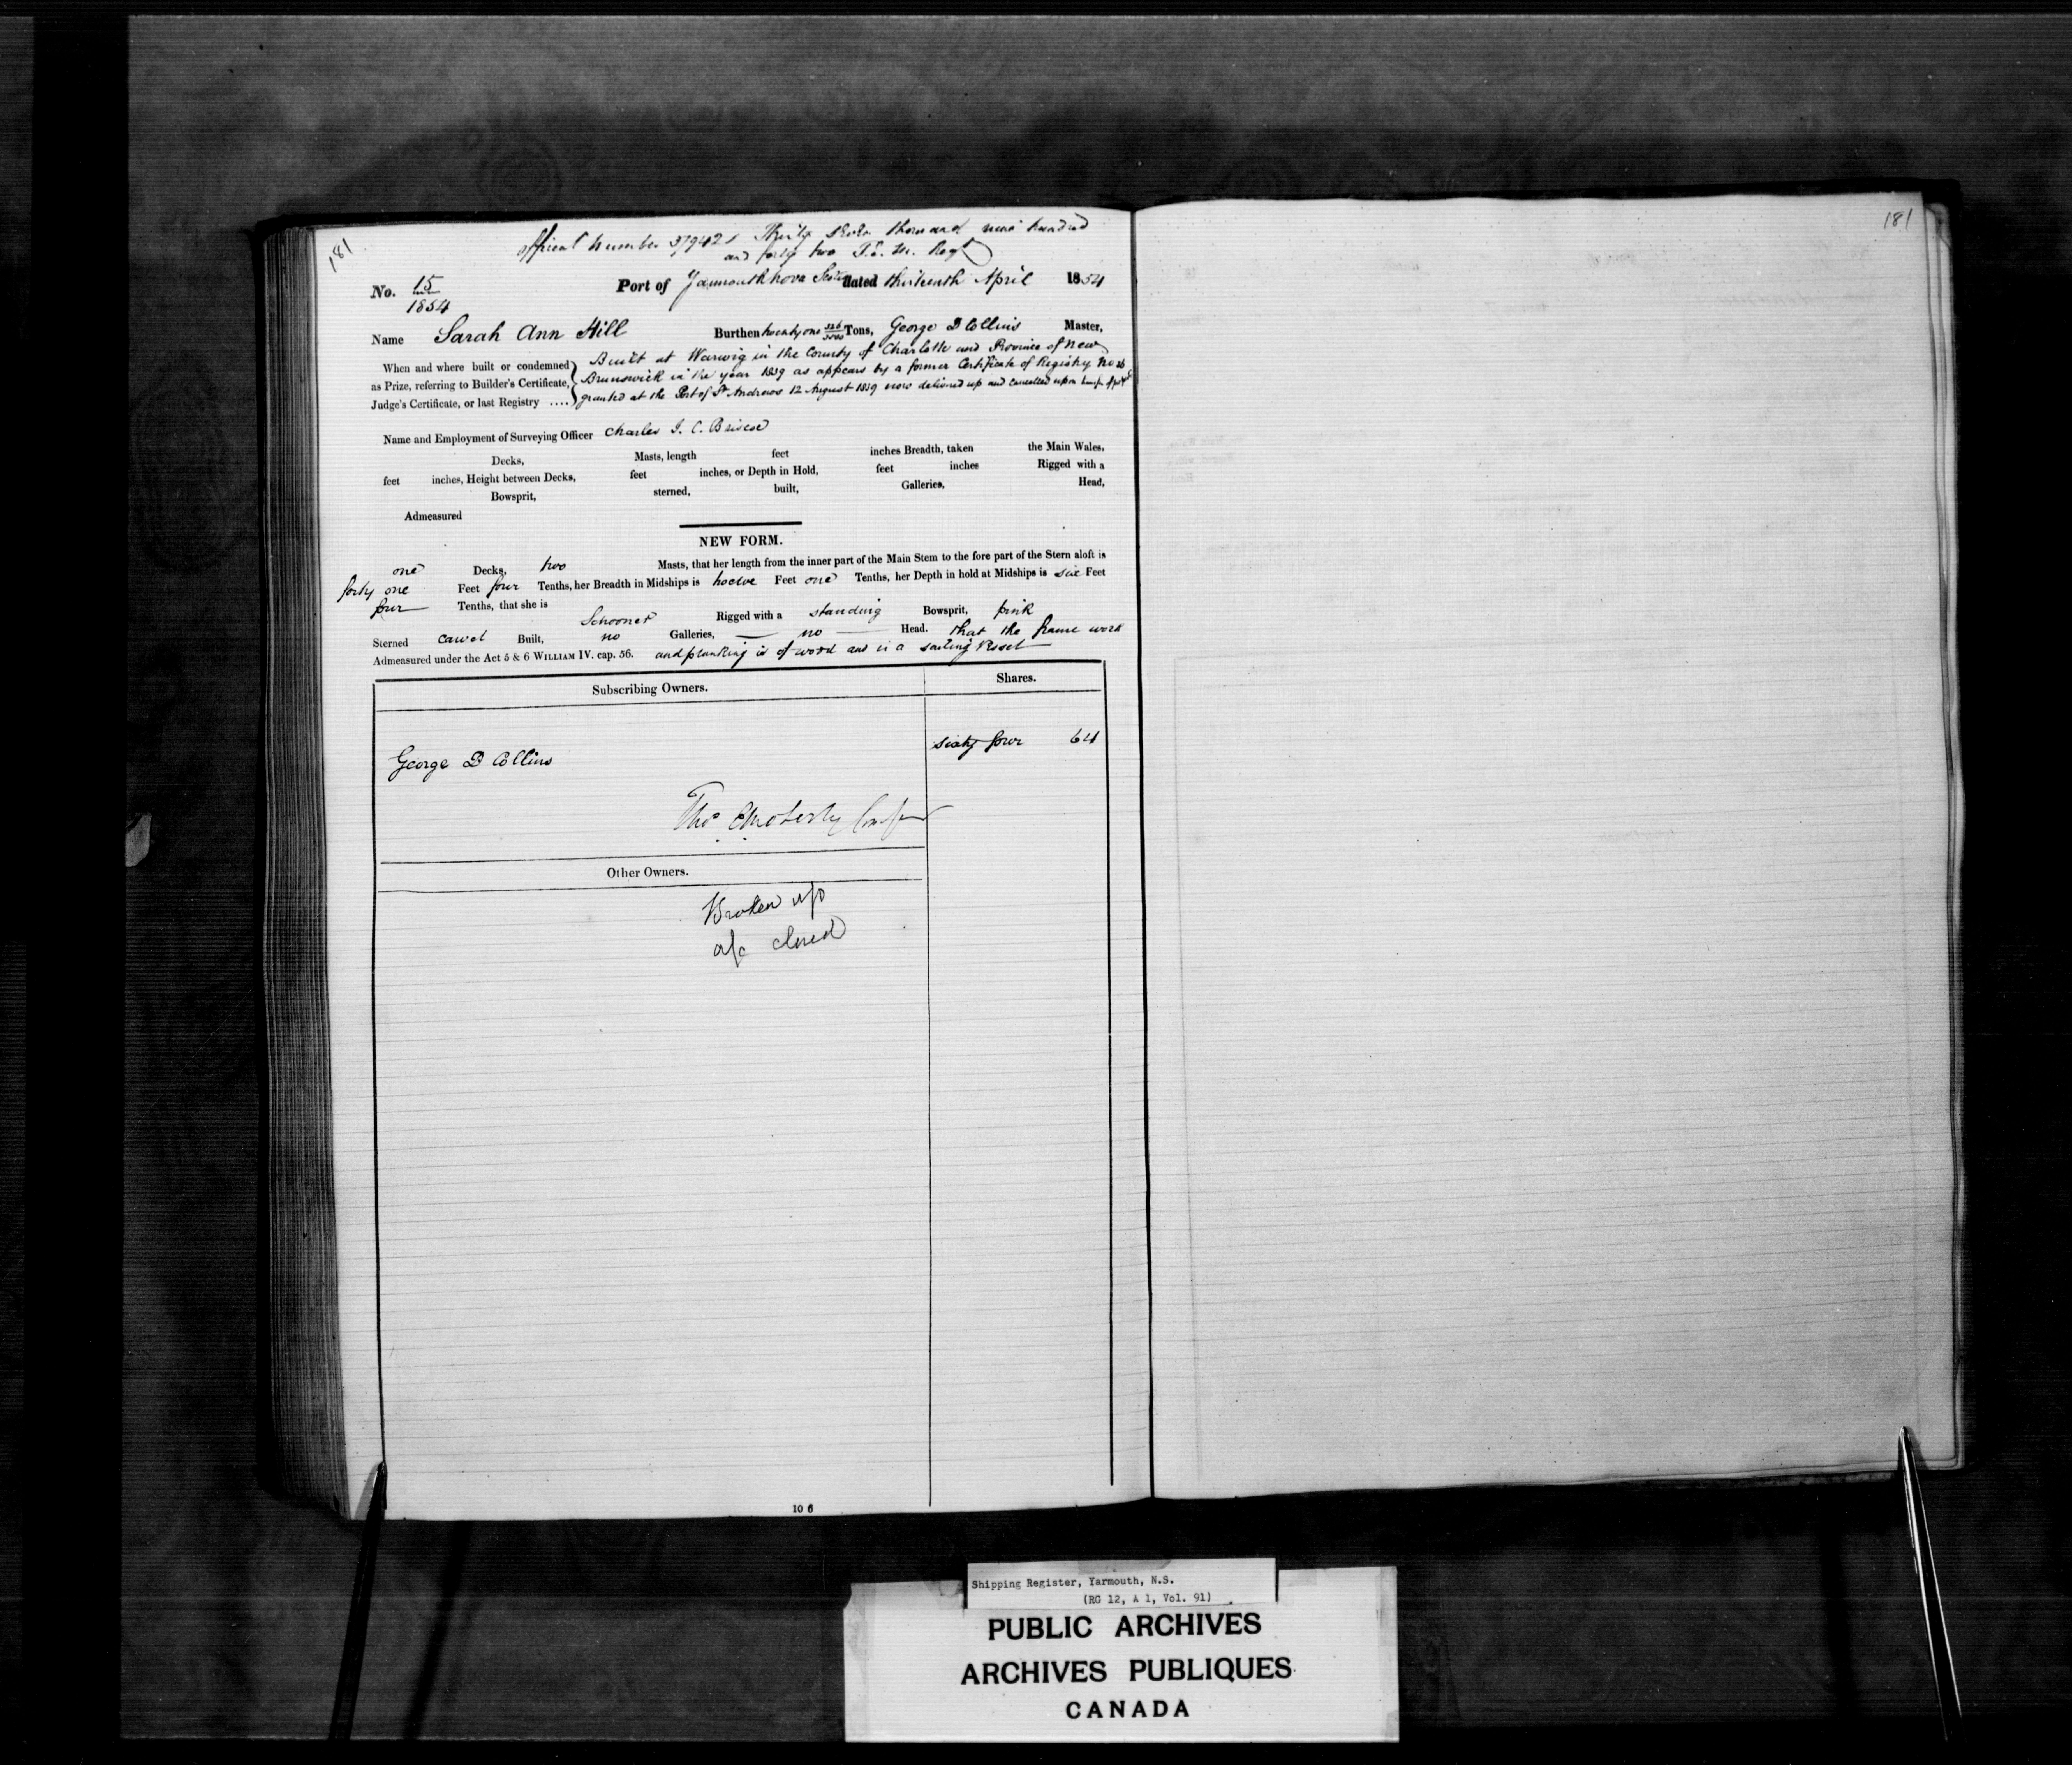 181
181
Official Number 37942 Thirty seven thousand nine hundred
and forty two
No. 15
1854
Port of Yarmouth Nova Scotia dated thirteenth April 1854
Name Sarah Ann Hill Burthen twenty one Tons, George D Collins Master,
When and where built or condemned as Prize, referring to Builder's Certificate, Judge's Certificate, or last Registry ....
Built at Warwig in the County of Charlotte and Province of New
Brunswick in the year 1839 as appears by a former Certificate of Registry No
granted at the Port of St Andrews 12 August 1839 now delivered up and cancelled upon
Name and Employment of Surveying Officer Charles J. C. Briscoe
Decks, Masts, length feet inches Breadth, taken the Main Wales,
feet inches, Height between Decks, feet inches, or Depth in Hold, feet inches Rigged with a
Bowsprit, sterned, built, Galleries, Head,
Admeasured
NEW FORM.
one Decks, two Masts, that her length from the inner part of the Main Stem to the fore part of the Stern aloft is
forty one Feet four Tenths, her Breadth in Midships is twelve Feet one Tenths, her Depth in hold at Midships is six Feet
four Tenths, that she is Schooner Rigged with a standing Bowsprit, pink
Sterned carvel Built, no Galleries, no Head. that the frame work
Admeasured under the Act 5 & 6 WILLIAM IV. cap. 56. and planking is of wood and is a sailing Vessel
Subscribing Owners. Shares.
George D Collins sixty four 64
Other Owners.
Broken up
a/c closed
10 6
Shipping Register, Yarmouth, N.S.
(RG 12, A 1, Vol. 91)
PUBLIC ARCHIVES
ARCHIVES PUBLIQUES
CANADA